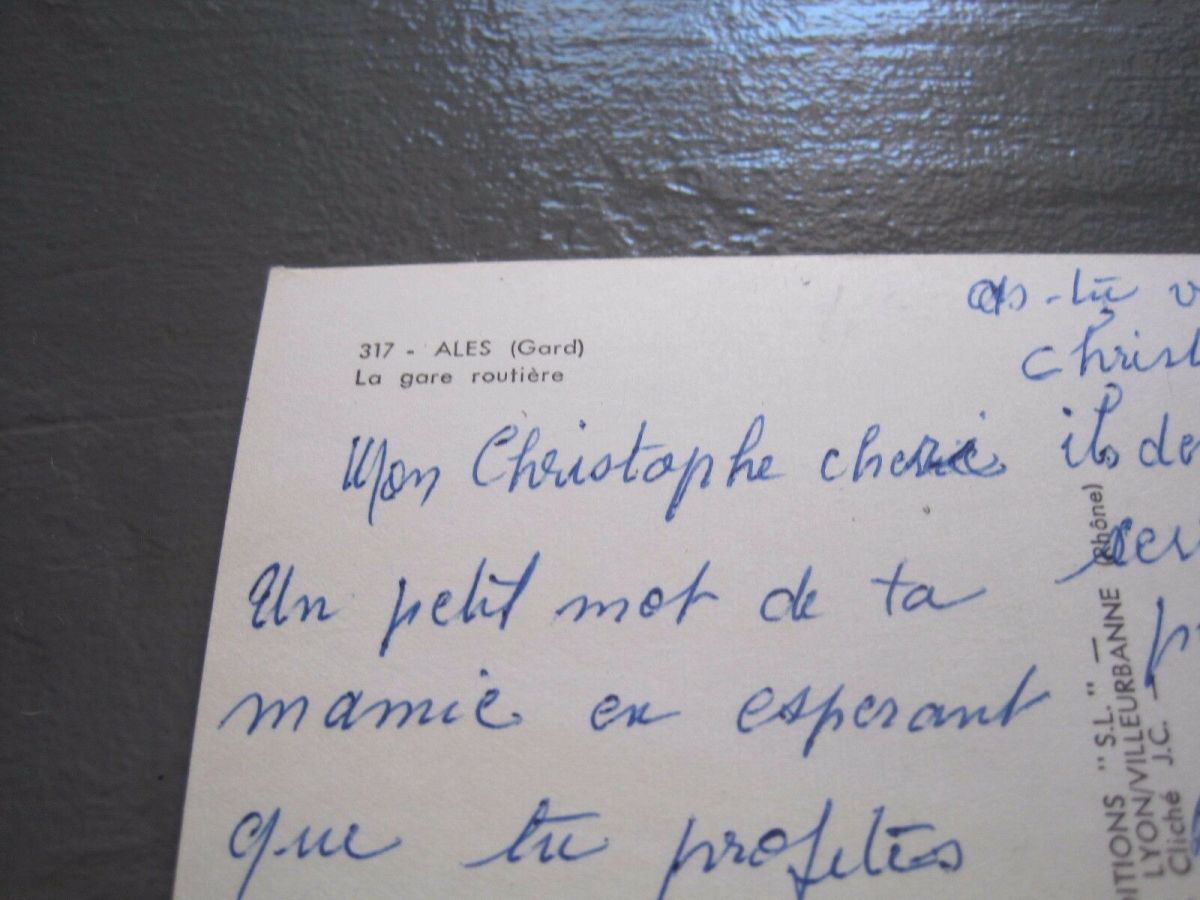 317 - ALES (Gard)
La gare routière
Mon Christophe cherie
Un petit mot de ta
mamie en esperant
que tu profites
as-tu
ils
EDITIONS "S.L." —
LYON/VILLEURBANNE (Rhône)
Cliché J.C. —